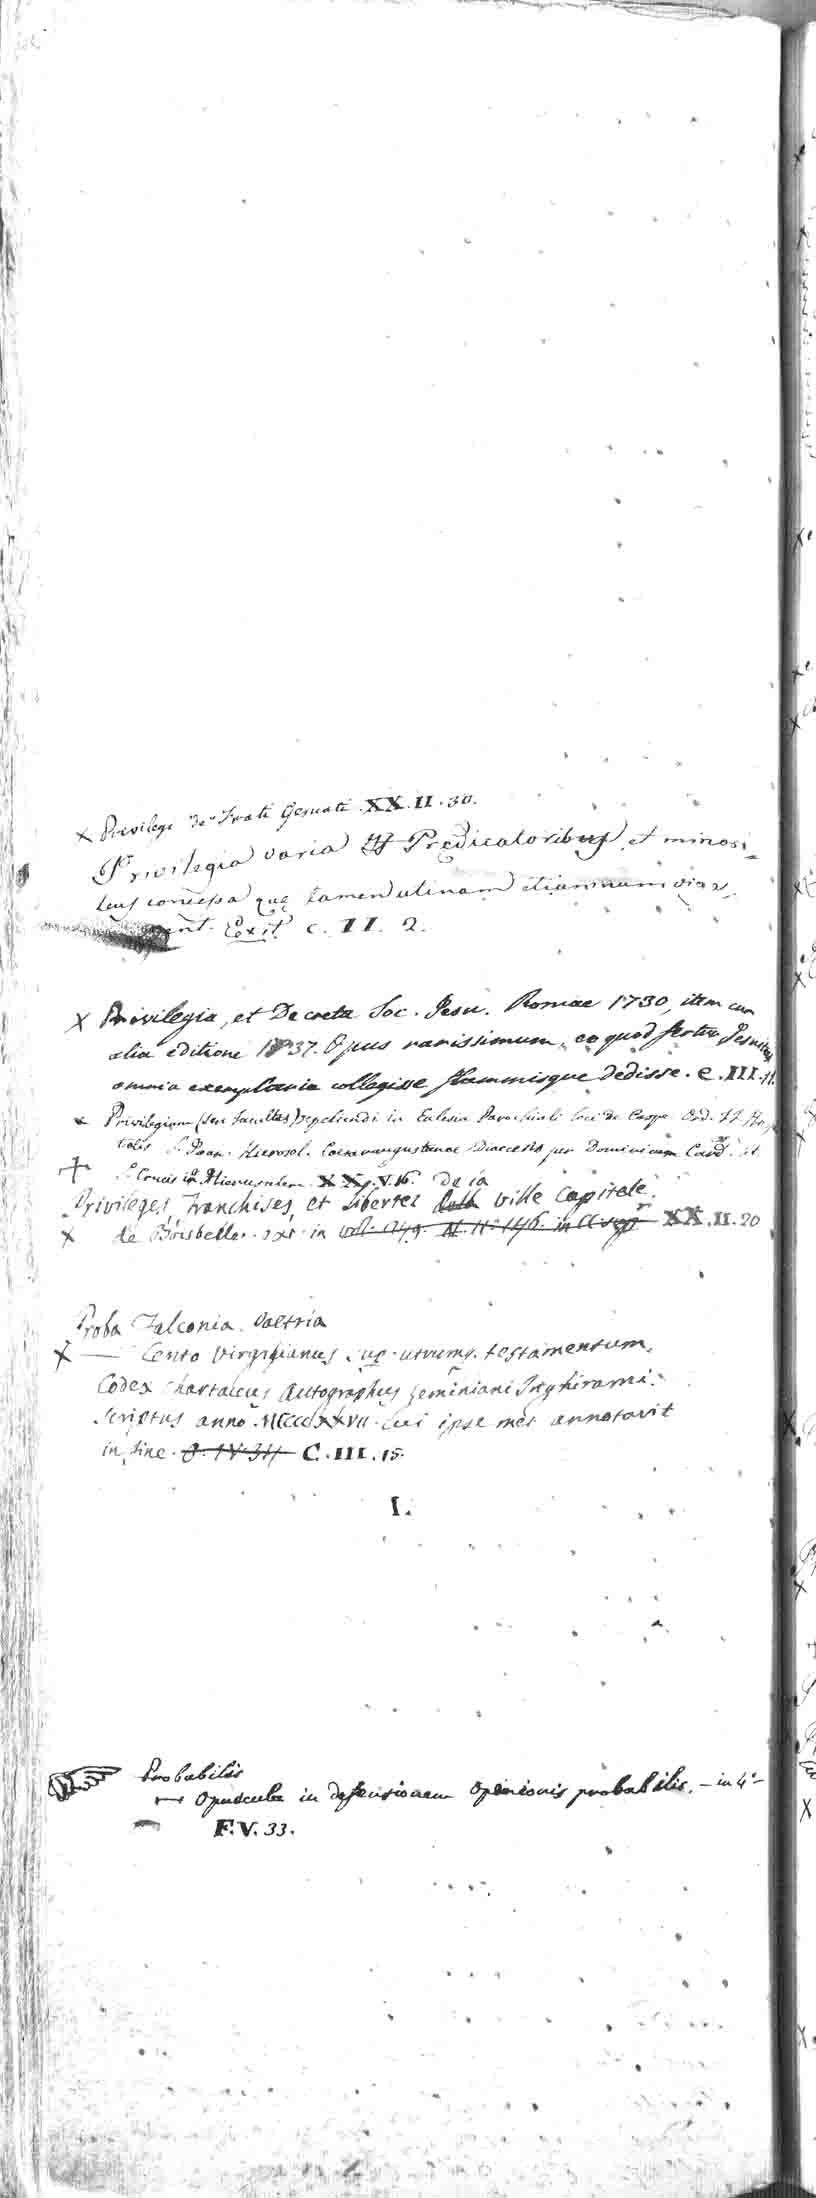 x Privilegi de' Frati Gesuati. XX.II.30.
Privilegia varia Predicatoribus, et minori-
bus concessa quę tamen utinam etiamnum
Exst. C. II. 2.
x Privilegia, et Decreta Soc. Jesu. Romae 1730, item cum
alia editione 1737. Opus rarissimum, eo quod fertur Jesuitas
omnia exemplaria collegisse flammisque dedisse. e.III.11.
x Privilegium (seu facultas) sepeliendi in Eclesia Parochiali loci de Caspe Ord. Hospi-
talis S. Joan. Hierosol. Caesaraugustanae Diaecesis per Dominicum Card. tt.
S. Crucis in Hierusalem XX.V.16.
Privileges, Franchises, et Libertes de la ville Capitele
x de Boisbelle. ext. in XX.II.20
Proba Falconia. Poetria
x — Cento Virgilianus sup. utrumq. testamentum.
Codex chartaceus Autographus Geminiani Inghirami.
Scriptus anno MCCCCXXVII. cui ipse met annotavit
in fine. C.III.15.
I.
Probabilis
Opuscula in defensionem opinionis probabilis. – in 4° –
F.V. 33.